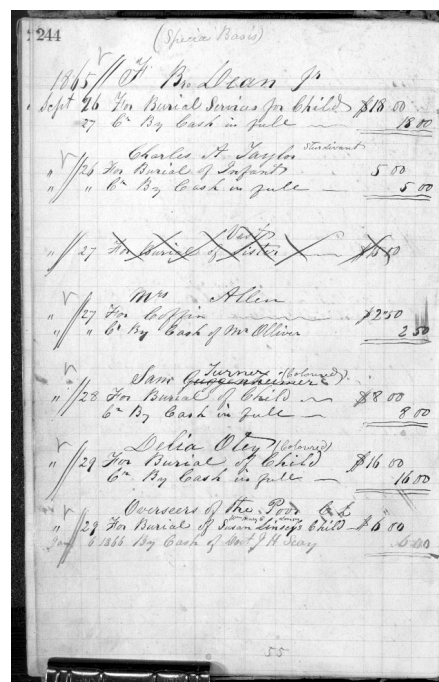 244
(Specie Basis)
1865 // F. B. Dean Jr
Sept 26 For Burial Services for Child $18 00
27 Cr By Cash in full 18 00
Charles A. Taylor Sturdivant
" // 26 For Burial of Infant 5.00
" " Cr By Cash in full 5 00
" // 27 For Burial of Sister
Mrs Allen
" // 27 For Coffin $2 50
" " Cr By Cash of Mr Olliver 2 50
Turner
Sam Guggenheimer's (Coloured)
" // 28 For Burial of Child $8 00
Cr By Cash in full 8 00
Delia Otey (Coloured)
" // 29 For Burial of Child $16 00
Cr By Cash in full 16 00
Overseers of the Poor
" // 29 For Burial of Susan Linsey's Child $6 00
6 1866 By Cash of J H Seay 6 00